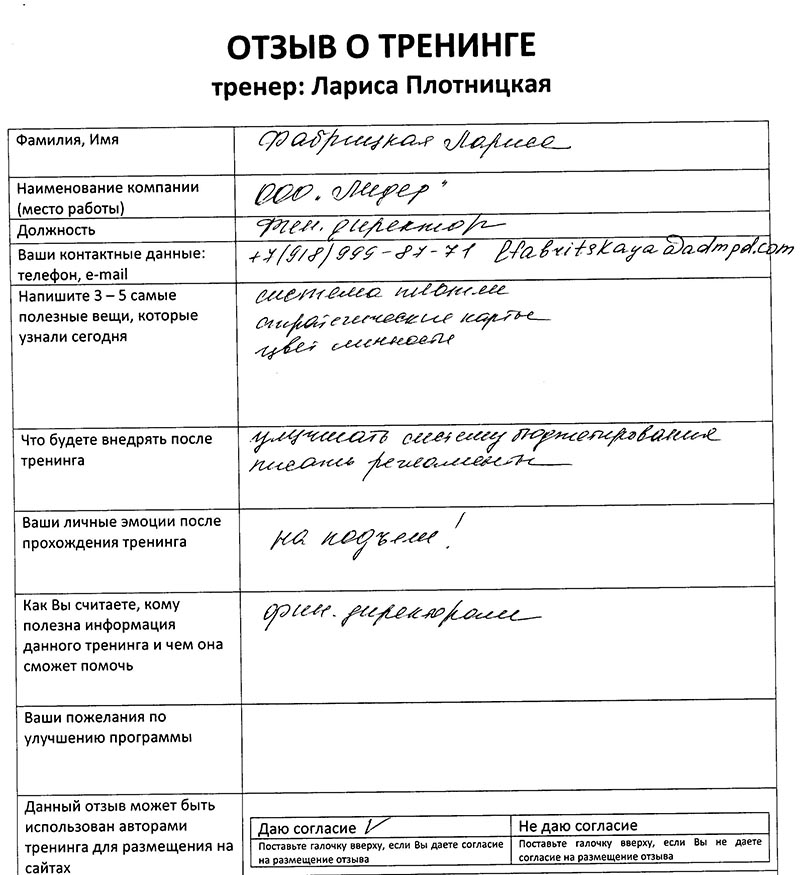 ОТЗЫВ О ТРЕНИНГЕ
тренер: Лариса Плотницкая
Фамилия, Имя
Фабрицкая Лариса
Наименование компании
(место работы)
ООО "Лидер"
Должность
Ген. директор
Ваши контактные данные:
телефон, e-mail
+7(918)999-87-71 lfabritskaya@admpd.com
Напишите 3 – 5 самые
полезные вещи, которые
узнали сегодня
система
стратегические карты
цвет личности
Что будете внедрять после
тренинга
улучшать систему бюджетирования
писать регламенты
Ваши личные эмоции после
прохождения тренинга
на подъеме!
Как Вы считаете, кому
полезна информация
данного тренинга и чем она
сможет помочь
фин. директорами
Ваши пожелания по
улучшению программы
Данный отзыв может быть
использован авторами
тренинга для размещения на
сайтах
Даю согласие ✓
Поставьте галочку вверху, если Вы даете согласие
на размещение отзыва
Не даю согласие
Поставьте галочку вверху, если Вы не даете
согласие на размещение отзыва